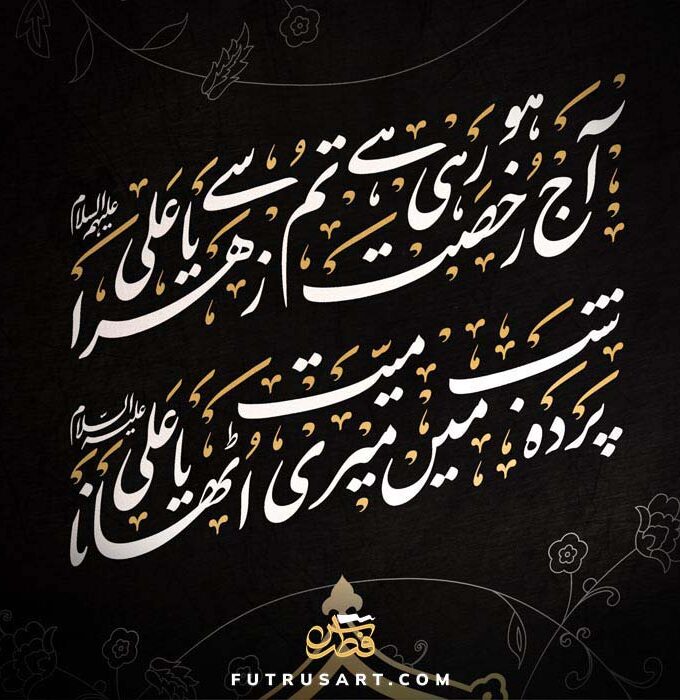 آج رُخصت ہو رہی ہے تُم سے زھرا یا عَلی علیہم السلام
پَردَہ شب میں میری میّت اُٹھانا یا عَلی علیہ السّلام
فطرس
FUTRUSART.COM